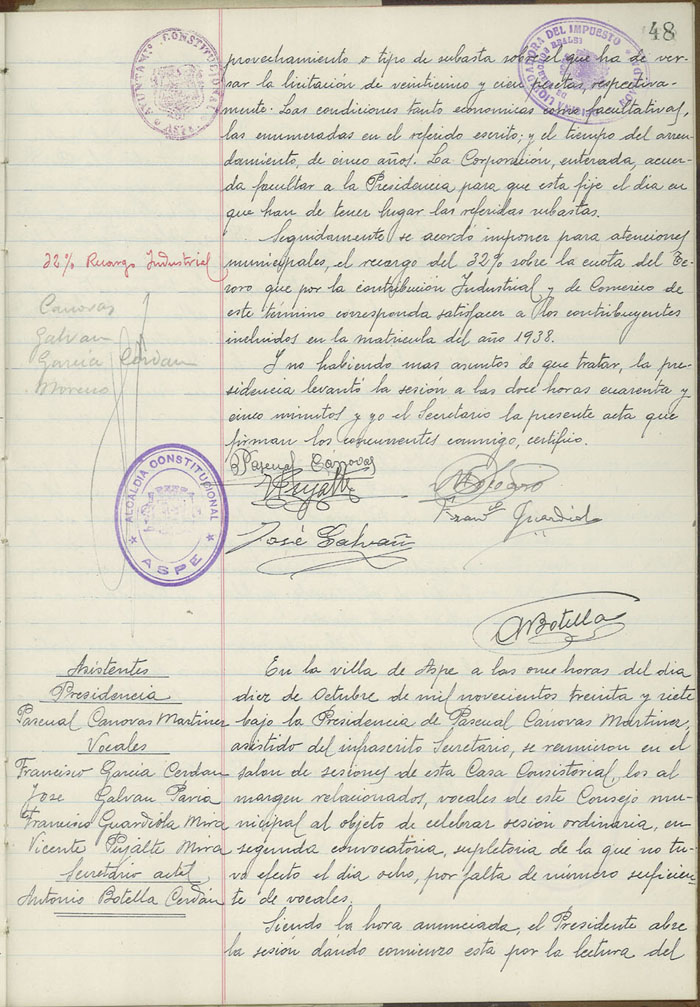 48
AYUNTAMTO CONSTITUCIONAL
ASPE
LIQUIDADORA DEL IMPUESTO
DERECHOS REALES
provechamiento o tipo de subasta sobre el que ha de ver-
sar la licitación de veinticinco y cien pesetas, respectiva-
mente. Las condiciones tanto economicas como facultativas,
las enumeradas en el referido escrito; y el tiempo del arren-
damiento, de cinco años. La Corporación, enterada, acuer-
da facultar a la Presidencia para que esta fije el dia en
que han de tener lugar las referidas subastas.
32% Recargo Industrial
Seguidamente se acordó imponer para atenciones
municipales, el recargo del 32% sobre la cuota del Te-
soro que por la contribución Industrial y de Comercio de
este término corresponda satisfacer a los contribuyentes
incluidos en la matricula del año 1938.
Canovas
Galvan
Garcia Cerdan
Moreno
Y no habiendo mas asuntos de que tratar, la pre-
sidencia levantó la sesión a las doce horas cuarenta y
cinco minutos y yo el Secretario la presente acta que
firman los concurrentes conmigo, certifico.
Pascual Cánovas
VPujalte
Franco Guardiol
José Galvañ
ALCALDIA CONSTITUCIONAL
ASPE
ABotella
Asistentes
Presidencia
Pascual Canovas Martinez
Vocales
Francisco García Cerdan
Jose Galvan Pavia
Francisco Guardiola Mira
Vicente Pujalte Mira
Secretario actal
Antonio Botella Cerdán
En la villa de Aspe a las once horas del dia
diez de Octubre de mil novecientos treinta y siete
bajo la Presidencia de Pascual Cánovas Martinez,
asistido del infrascrito Secretario, se reunieron en el
salon de sesiones de esta Casa Consistorial, los al
margen relacionados, vocales de este Consejo mu-
nicipal al objeto de celebrar sesión ordinaria, en
segunda convocatoria, supletoria de la que no tu-
vo efecto el dia ocho, por falta de número suficien-
te de vocales.
Siendo la hora anunciada, el Presidente abre
la sesión dando comienzo esta por la lectura del